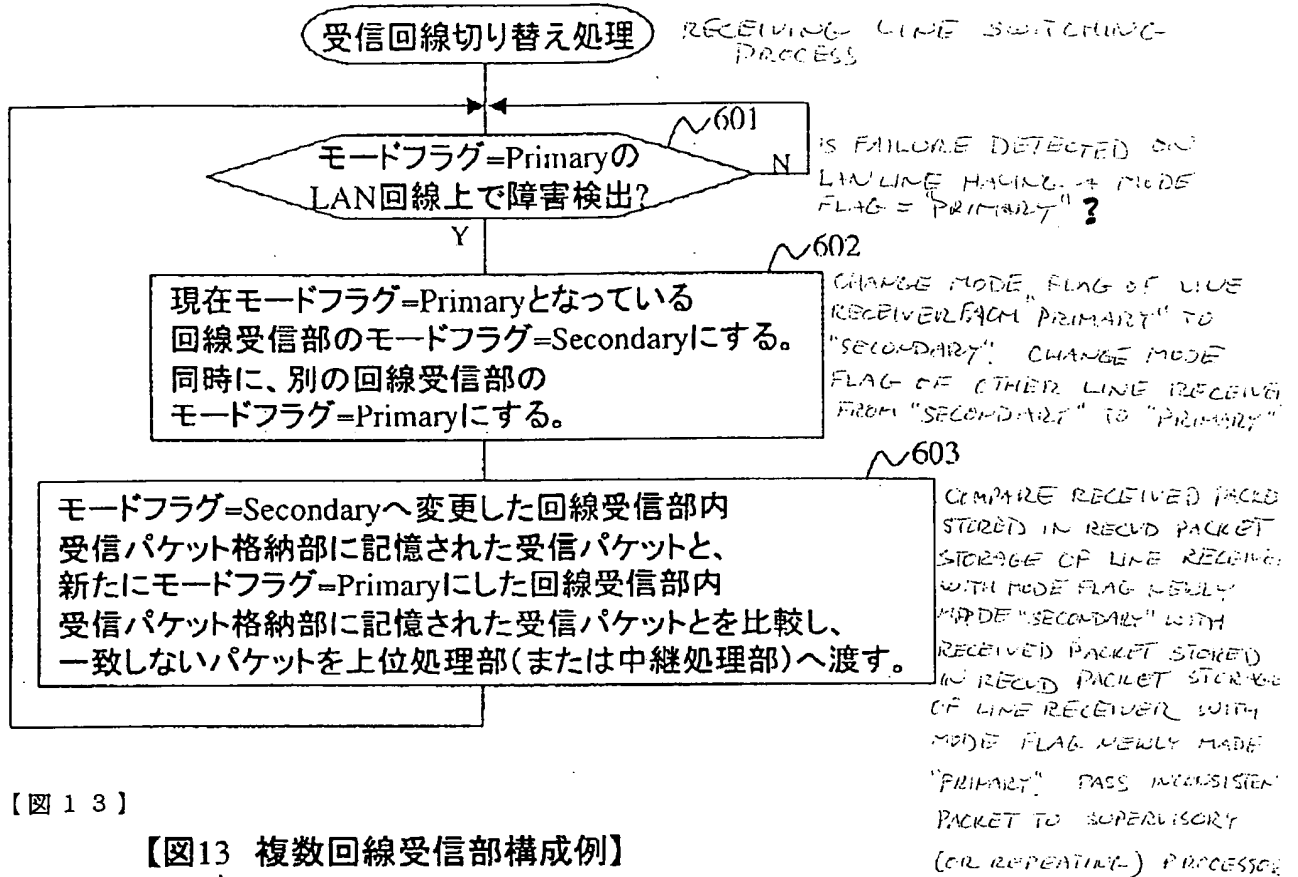 受信回線切り替え処理
RECEIVING LINE SWITCHING
PROCESS
601
モードフラグ=Primaryの
LAN回線上で障害検出?
N
Y
IS FAILURE DETECTED ON
LAN LINE HAVING A MODE
FLAG = "PRIMARY" ?
602
現在モードフラグ=Primaryとなっている
回線受信部のモードフラグ=Secondaryにする。
同時に、別の回線受信部の
モードフラグ=Primaryにする。
CHANGE MODE FLAG OF LINE
RECEIVER FROM "PRIMARY" TO
"SECONDARY". CHANGE MODE
FLAG OF OTHER LINE RECEIVE
FROM "SECONDARY" TO "PRIMARY"
603
モードフラグ=Secondaryへ変更した回線受信部内
受信パケット格納部に記憶された受信パケットと、
新たにモードフラグ=Primaryにした回線受信部内
受信パケット格納部に記憶された受信パケットとを比較し、
一致しないパケットを上位処理部(または中継処理部)へ渡す。
COMPARE RECEIVED PACKE
STORED IN RECVD PACKET
STORAGE OF LINE RECEIVE
WITH MODE FLAG NEWLY
MADE "SECONDARY" WITH
RECEIVED PACKET STORED
IN RECVD PACKET STORAGE
OF LINE RECEIVER WITH
MODE FLAG NEWLY MADE
"PRIMARY". PASS INCONSISTEN
PACKET TO SUPERVISORY
(OR REPEATING) PROCESSOR
【図13】
【図13 複数回線受信部構成例】